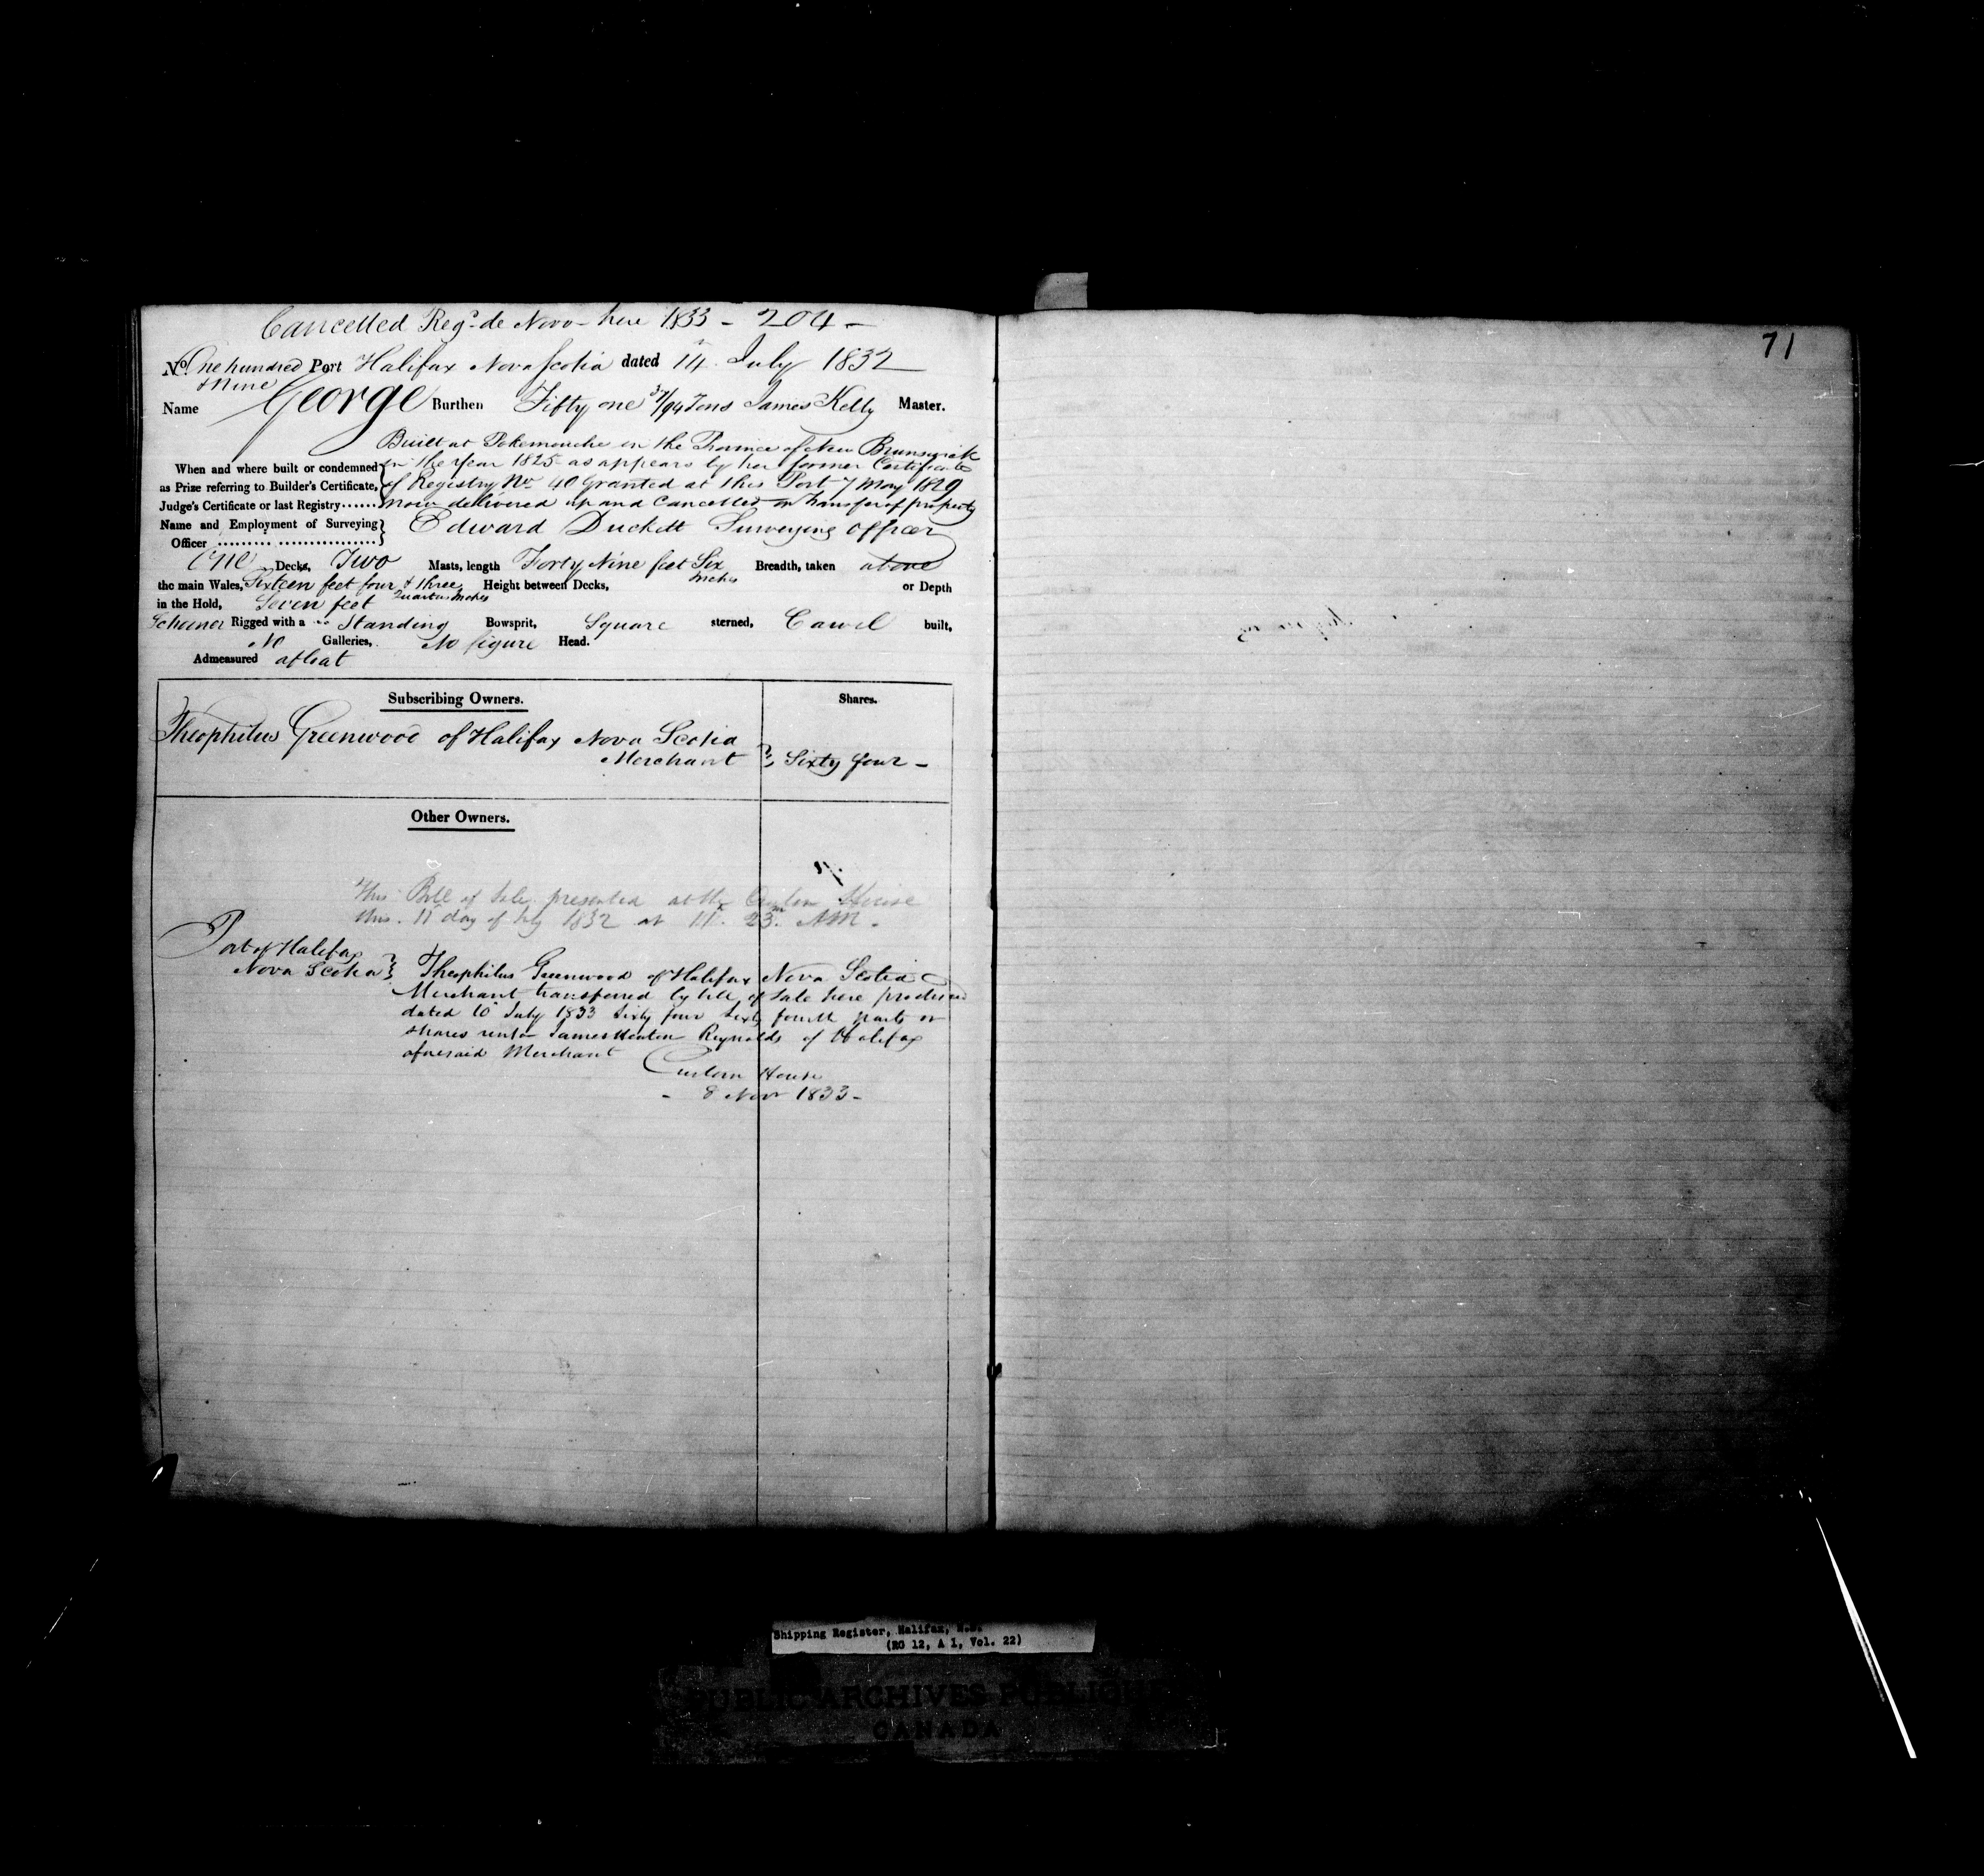 Cancelled Reg. de Novo here 1833 - 204 -
No. One hundred & Nine Port Halifax Nova Scotia dated 14 July 1832
Name George Burthen Fifty one 37/94 Tons James Kelly Master.
Built at Pokemouche in the Province of New Brunswick
When and where built or condemned in the Year 1825 as appears by her former Certificate
as Prize referring to Builder's Certificate, of Registry No 40 Granted at this Port 7 May 1829
Judge's Certificate or last Registry...... now delivered up and Cancelled on transfer of property
Name and Employment of Surveying Edward Duckett Surveying officer
Officer
One Decks, Two Masts, length Forty Nine feet Six Inches Breadth, taken above
the main Wales, Sixteen feet four & three Quarters Inches Height between Decks, or Depth
in the Hold, Seven feet
Schooner Rigged with a Standing Bowsprit, Square sterned, Carvel built,
No Galleries, No figure Head.
Admeasured afloat
Subscribing Owners. Shares.
Theophilus Greenwood of Halifax Nova Scotia
Merchant } Sixty four -
Other Owners.
This Bill of Sale presented at the Custom House
this 11 day of July 1832 at 11. 23m AM.
Port of Halifax
Nova Scotia } Theophilus Greenwood of Halifax Nova Scotia
Merchant transferred by bill of Sale here produced
dated 10 July 1833 Sixty four Sixty fourth parts or
shares unto James Reynolds of Halifax
aforesaid Merchant
Custom House
- 8 Novr 1833 -
71
Shipping Register, Halifax, N.S.
(RG 12, A 1, Vol. 22)
PUBLIC ARCHIVES PUBLIQUES
CANADA